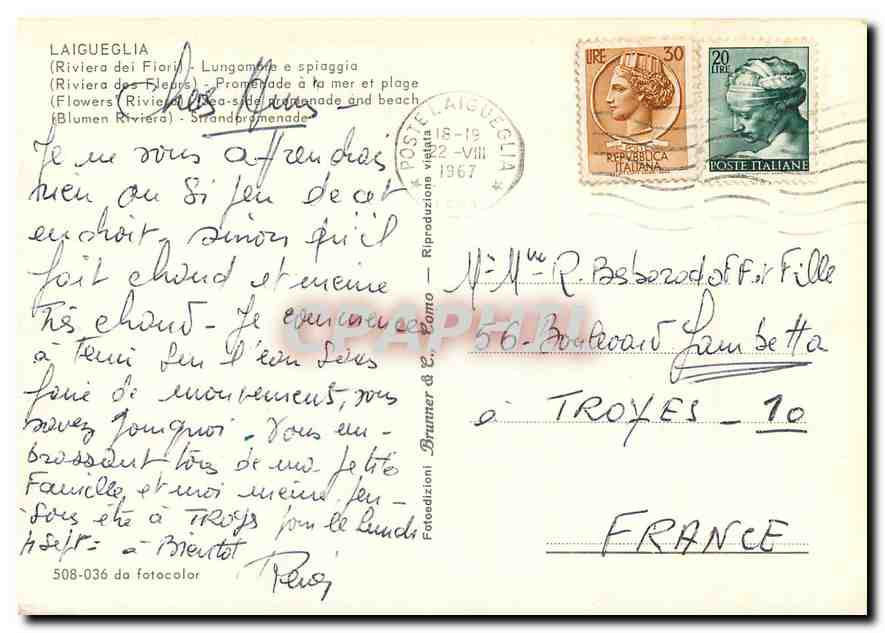 LAIGUEGLIA
(Riviera dei Fiori) - Lungomare e spiaggia
(Riviera des Fleurs) - Promenade à la mer et plage
(Flowers Riviera) - Sea-side promenade and beach
(Blumen Riviera) - Strandpromenade
Chers Amis -
Je ne vous apprendrais
rien ou si peu de cet
endroit - sinon qu'il
fait chaud et même
très chaud - Je commence
à tenir sur l'eau sans
faire de mouvements, vous
savez pourquoi - Vous em-
brassant tous de ma petite
Famille, et moi même
à TROYES pour le lundi
4 Sept = à Bientôt
508-036 da fotocolor
Fotoedizioni Brunner & C., Como - Riproduzione vietata
POSTE LAIGUEGLIA
18-19
22-VIII
1967
LIRE 30
REPVBBLICA
ITALIANA
20
LIRE
POSTE ITALIANE
Mr Mme R. Besborodoff Fille
56 - Boulevard Gambetta
à TROYES - 10
FRANCE
CPAPHIL